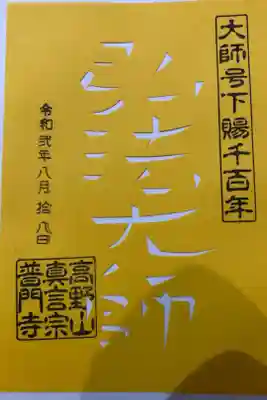 大師号下賜千百年
弘法大師
令和弐年八月拾八日
高野山
真言宗
普門寺